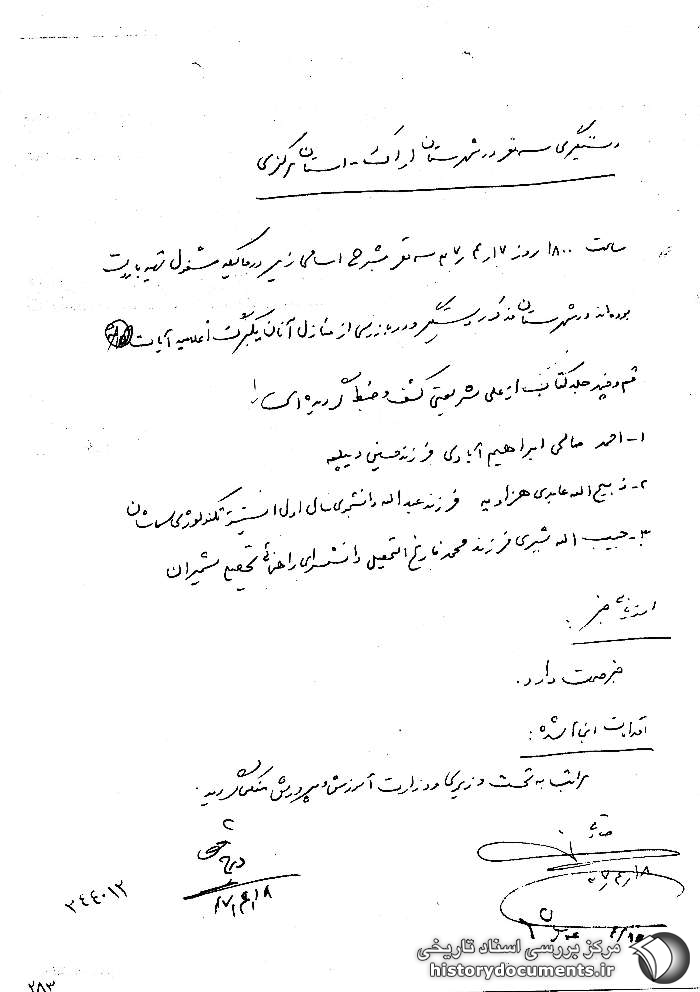 دستگیری سه نفر در شهرستان اراک - استان مرکزی
ساعت ۱۸۰۰ روز ۱۷ر۴ر۳۷ سه نفر بشرح اسامی زیر در حالیکه مشغول تهیه
بوده‌اند در شهرستان مذکور دستگیر و در بازرسی از منازل آنان یکبرگ اعلامیه آیات
قم و چند جلد کتاب از علی شریعتی کشف و ضبط گردیده
۱- احمد صالحی ابراهیم آبادی فرزند حسین دیپلمه
۲- ذبیح اله عابدی هزاوه فرزند عبداله دانشجوی سال اول انستیتو تکنولوژی
۳- حبیب اله فرزند محمد فارغ التحصیل دانشسرای راهنمائی تحصیلی شمیران
ارزیابی خبر :
خبر صحت دارد.
اقدامات انجام شده :
مراتب به نخست وزیری و وزارت آموزش و پرورش منعکس گردید.
۳۴۴۰۱۲
۲۸۳
مرکز بررسی اسناد تاریخی
historydocuments.ir